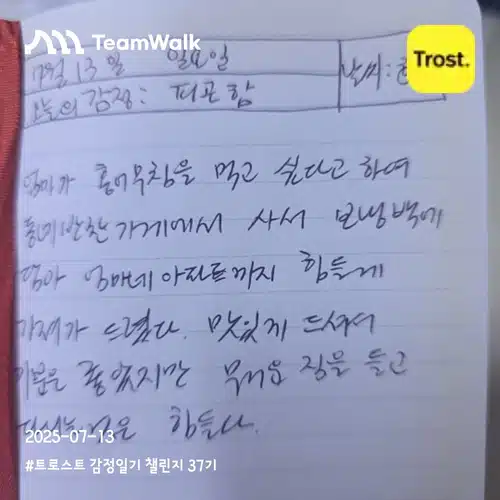 TeamWalk
Trost.
7월 13일 일요일
날씨:
오늘의 감정: 피곤함
엄마가 홍어무침을 먹고 싶다고 하여
동네반찬가게에서 사서 보냉백에
담아 엄마네 아파트까지 힘들게
가져가 드렸다. 맛있게 드셔서
기분은 좋았지만 무거운 짐을 들고
힘들다.
2025-07-13
#트로스트 감정일기 챌린지 37기